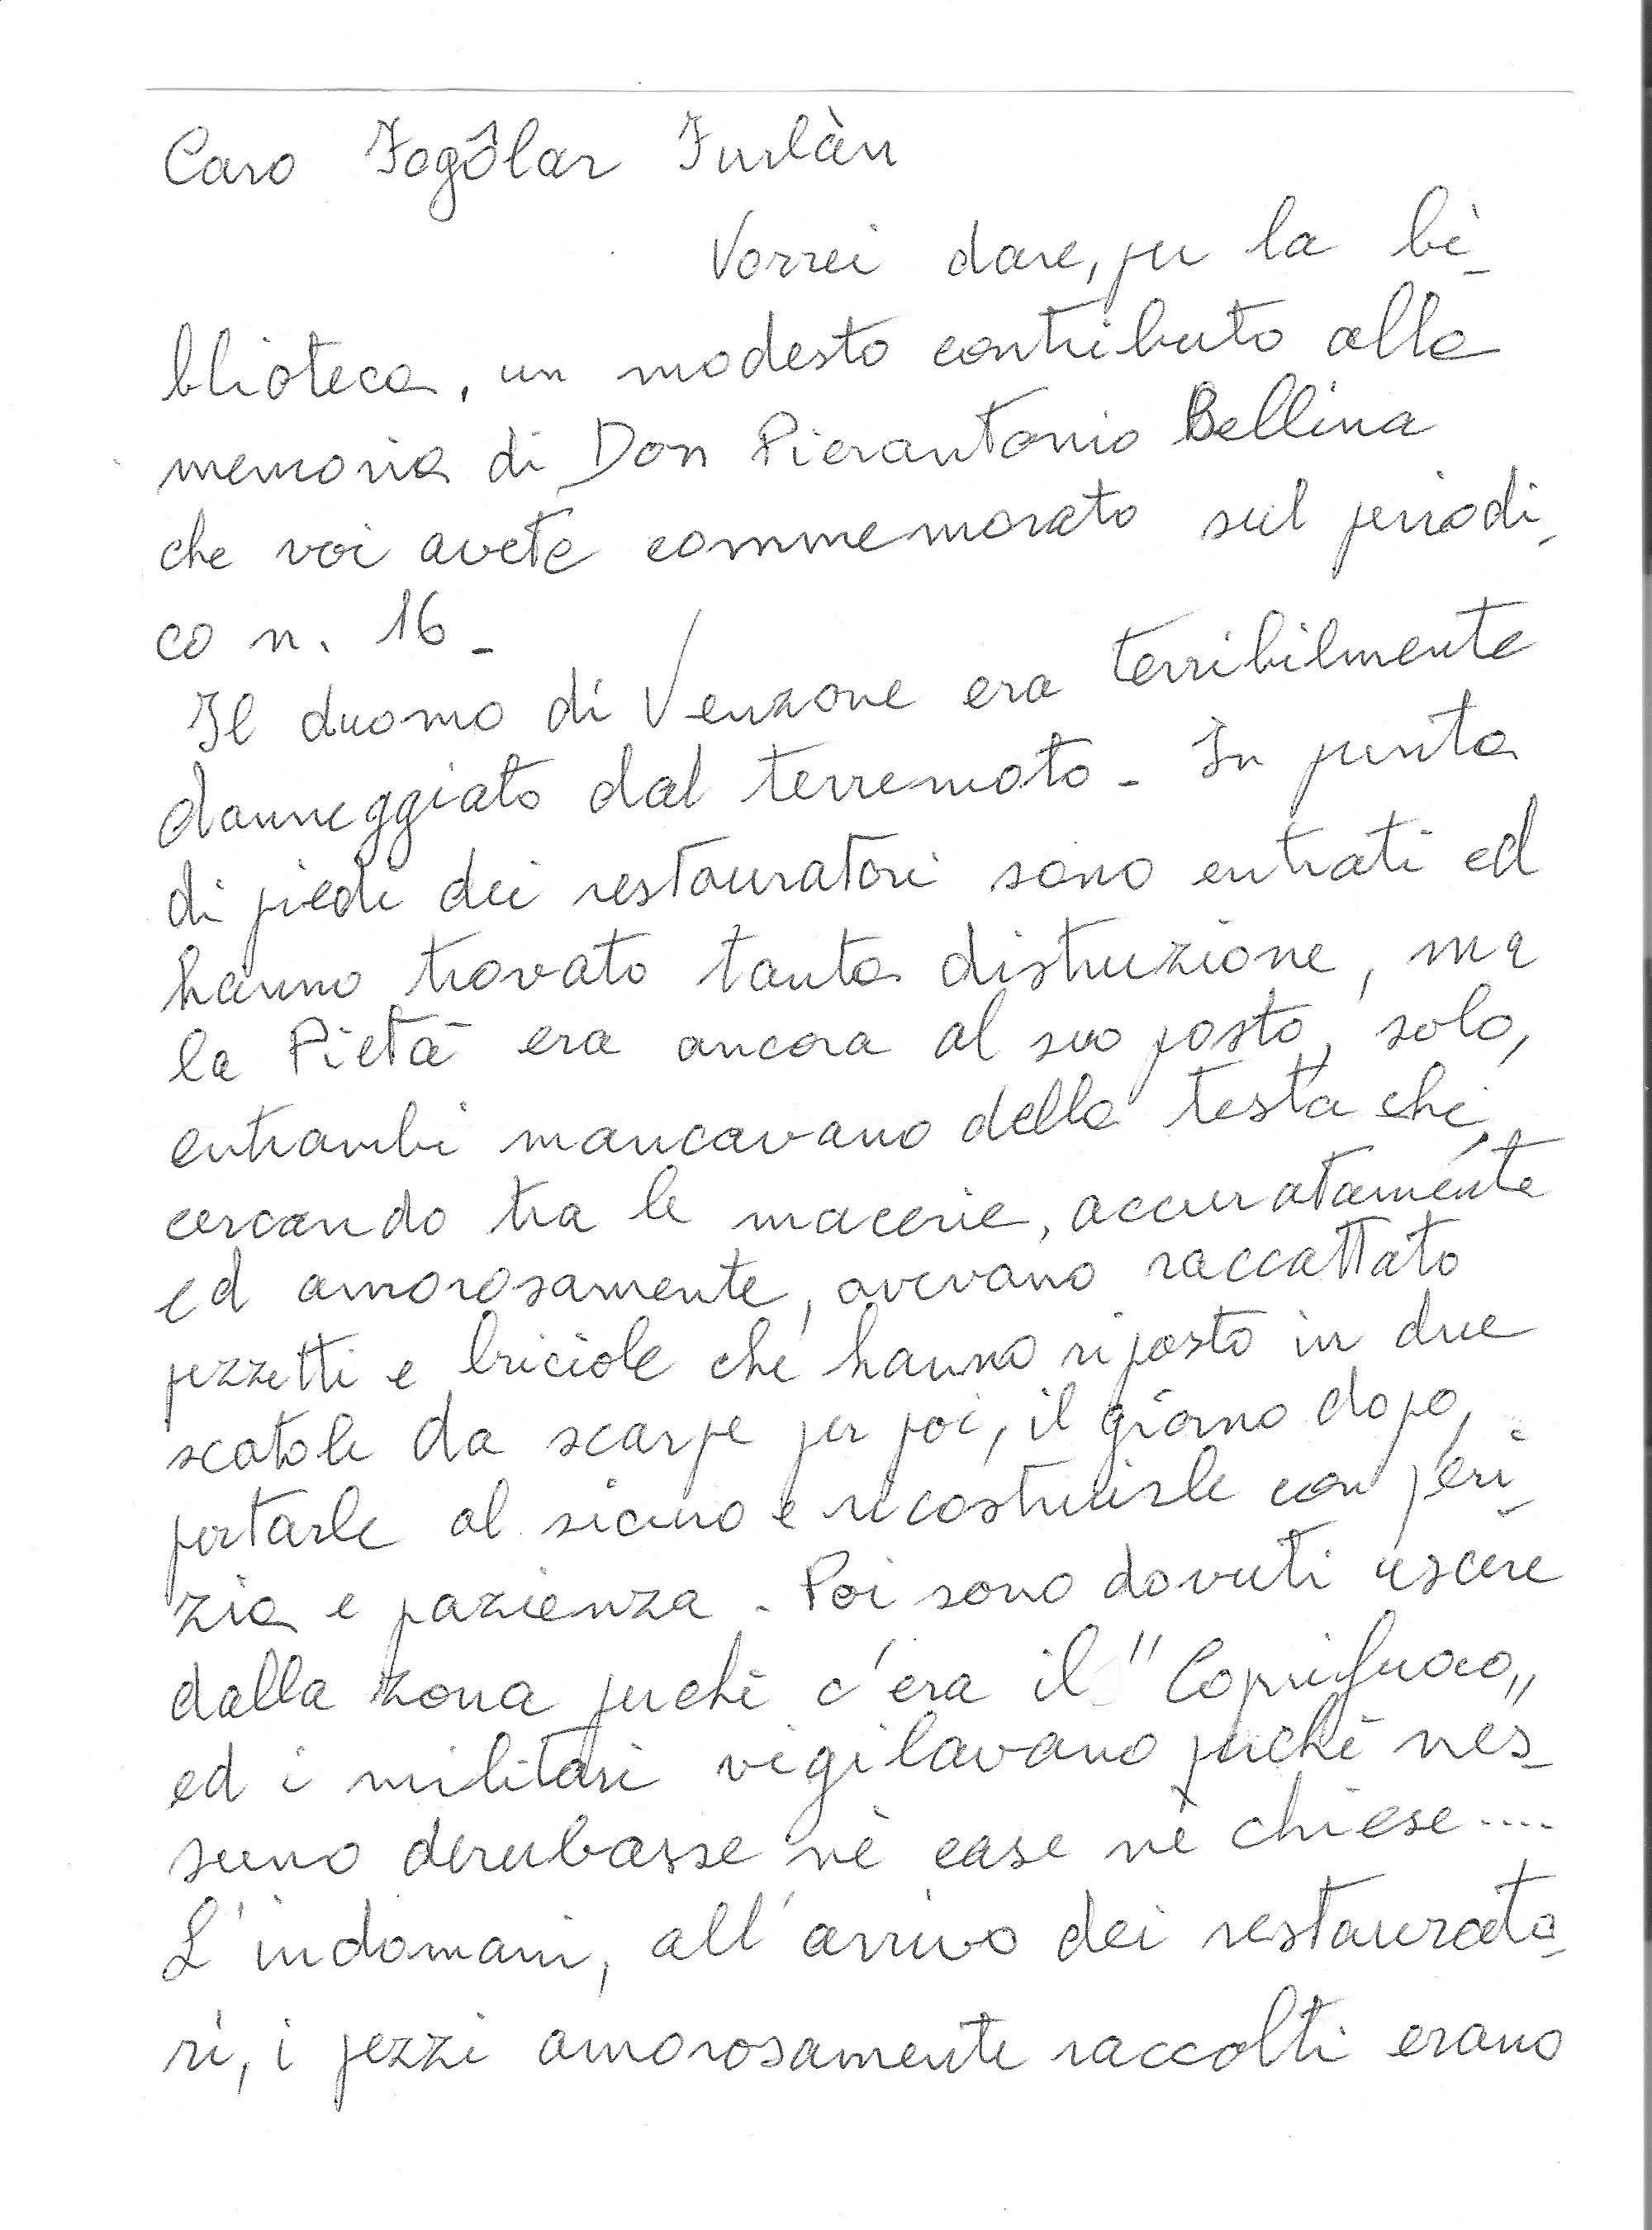 Caro Fogôlar Furlàn
Vorrei dare, per la bi-
blioteca, un modesto contributo alla
memoria di Don Pierantonio Bellina
che voi avete commemorato sul periodi-
co n. 16_
Il duomo di Venzone era terribilmente
danneggiato dal terremoto - In punta
di piedi dei restauratori sono entrati ed
hanno trovato tanta distruzione, ma
la Pietà era ancora al suo posto, solo,
entrambi mancavano della testa che,
cercando tra le macerie, accuratamente
ed amorosamente, avevano raccattato
pezzetti e briciole che hanno riposto in due
scatole da scarpe per poi, il giorno dopo,
portarle al sicuro e ricostruirle con peri-
zia e pazienza. Poi sono dovuti uscire
dalla zona perchè c'era il "Coprifuoco"
ed i militari vigilavano perchè nes-
suno derubasse nè case nè chiese....
L'indomani, all'arrivo dei restaurato-
ri, i pezzi amorosamente raccolti erano